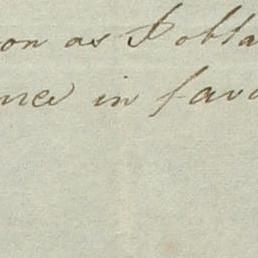 on as I obta
nce in favo